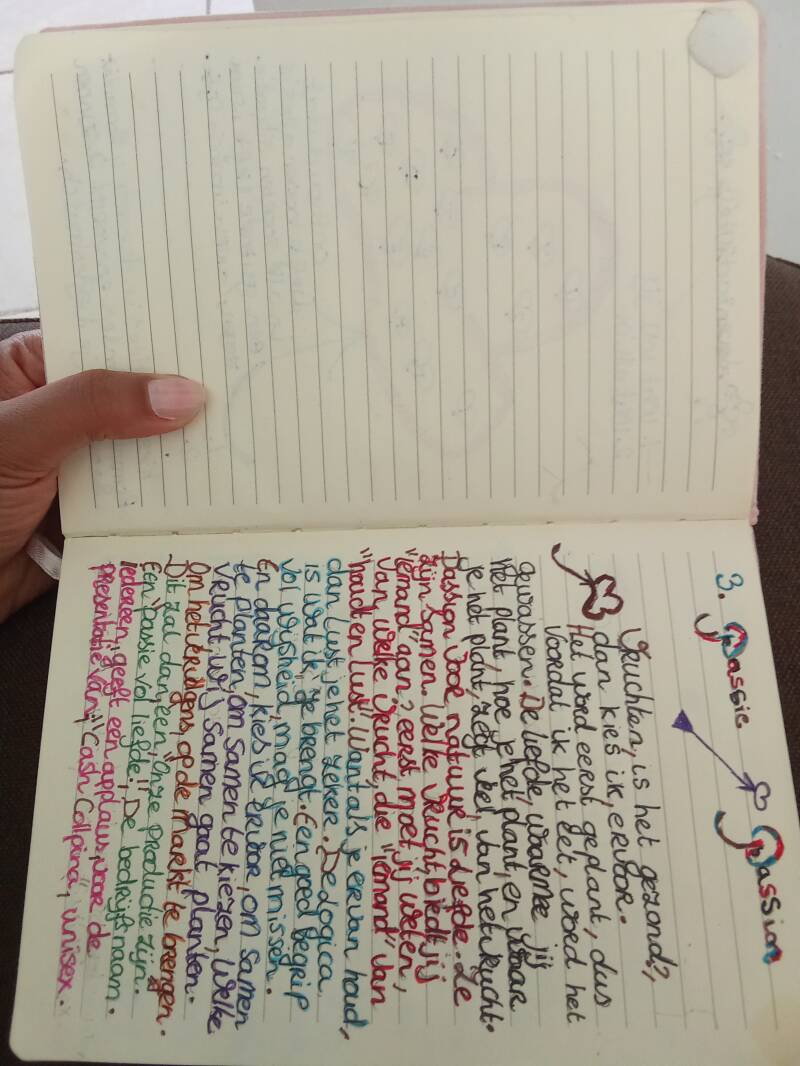 3. Passie Passion
Vruchten, is het gezond?,
dan kies ik, ervoor.
Het word eerst geplant, dus
voordat ik het eet, word het
gewassen. De liefde, waarmee jij
het plant, hoe je het plant, en waar
je het plant, zegt veel, van het vrucht.
Passion voor, natuur, is Liefde. Ze
zijn samen. Welke vrucht, biedt jij
"iemand" aan? eerst, moet, jij weten,
van welke vrucht, die "iemand" van
"houd en lust". Want als je ervan houd,
dan lust, je het zeker. De logica,
is wat ik, je brengt. Een goed begrip
vol wijsheid, mag je niet missen.
En daarom, kies ik ervoor, om samen
te planten, om samen te kiezen, welke
vrucht, wij samen gaat planten.
Om het vervolgens, op de markt te brengen.
Dit zal dan, een, "Onze productie zijn.
Een "passie vol liefde", De bedrijfsnaam.
Iedereen, geeft een applaus, voor de
presentatie van, "Cash Collpina", unisex.